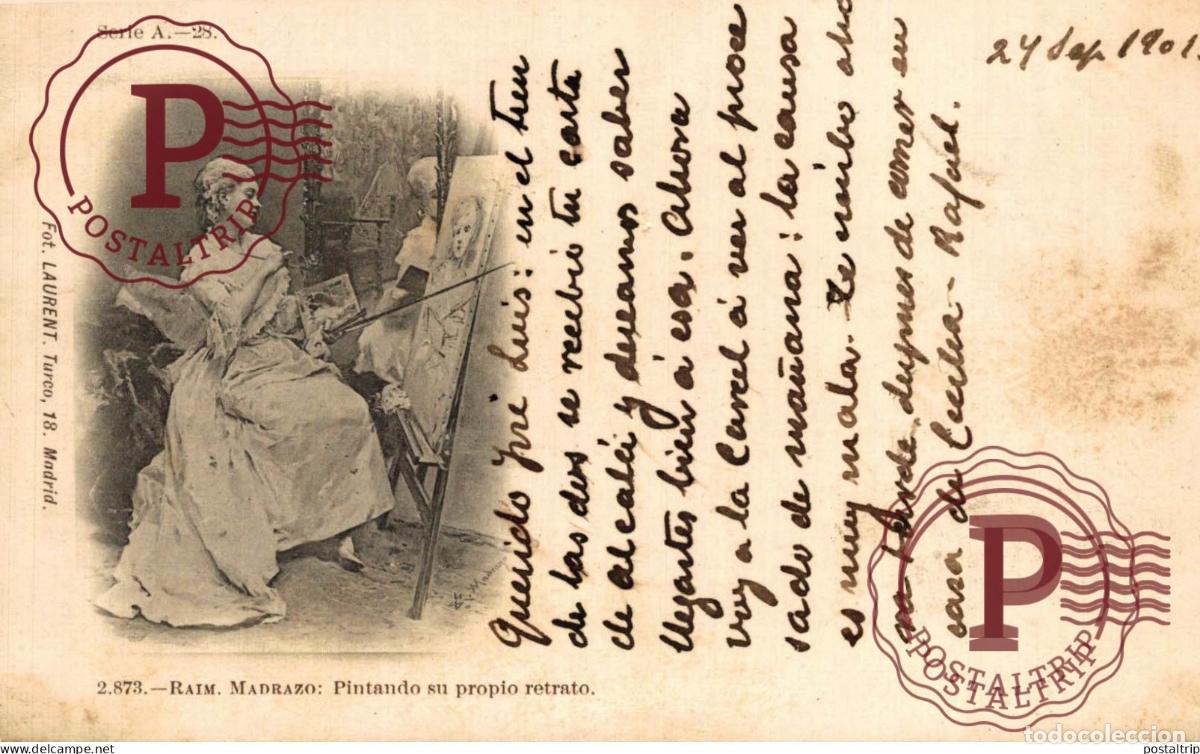 Serie A.—28.
24 Sep 1901.
Fot. LAURENT. Turco, 18. Madrid.
Querido Luis: en el tren
de las dos se recibió tu carta
de Alcalá y deseamos saber
llegastes bien á esa. Ahora
voy a la Carcel á ver al proce
sado de mañana: la causa
es muy mala. Te escribo
tarde, despues de comer en
casa de Cecilia - Rafael.
2.873.—RAIM. MADRAZO: Pintando su propio retrato.
P
POSTALTRIP
P
POSTALTRIP
POSTALTRIP
todocoleccion
www.todocoleccion.net
postaltrip